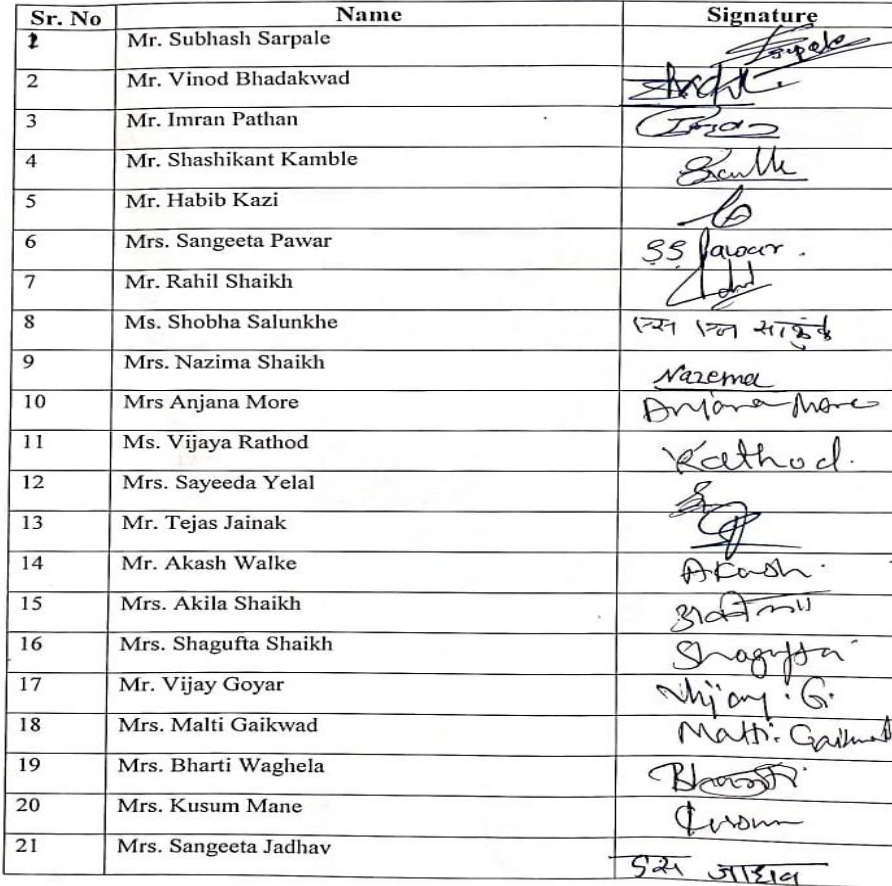 Sr. No Name Signature
1 Mr. Subhash Sarpale Sarpale
2 Mr. Vinod Bhadakwad
3 Mr. Imran Pathan Imran
4 Mr. Shashikant Kamble
5 Mr. Habib Kazi
6 Mrs. Sangeeta Pawar SS Pawar.
7 Mr. Rahil Shaikh
8 Ms. Shobha Salunkhe एस एन साळुंके
9 Mrs. Nazima Shaikh Nazema
10 Mrs Anjana More Anjana More
11 Ms. Vijaya Rathod Rathod.
12 Mrs. Sayeeda Yelal
13 Mr. Tejas Jainak
14 Mr. Akash Walke Akash.
15 Mrs. Akila Shaikh अकीला
16 Mrs. Shagufta Shaikh Shagufta
17 Mr. Vijay Goyar Vijay. G.
18 Mrs. Malti Gaikwad Malti. Gaikwad
19 Mrs. Bharti Waghela Bharti
20 Mrs. Kusum Mane Kusum
21 Mrs. Sangeeta Jadhav एस जाधव